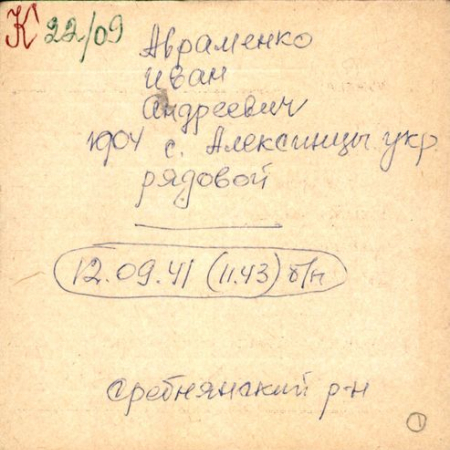 К 22/09
Авраменко
Иван
Андреевич
1904 с. Алексинцы укр.
рядовой
12.09.41 (11.43) б/п
Сребнянский р-н
1